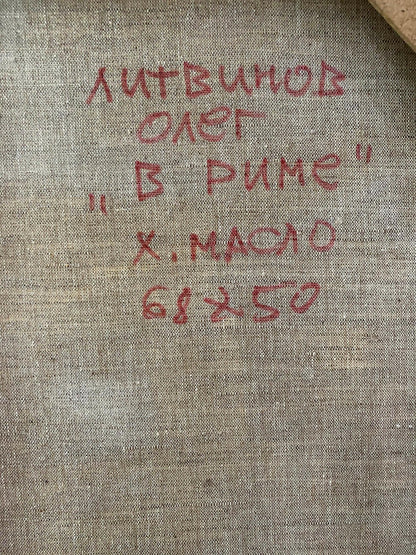 ЛИТВИНОВ
ОЛЕГ
„В РИМЕ"
Х. МАСЛО
68x50